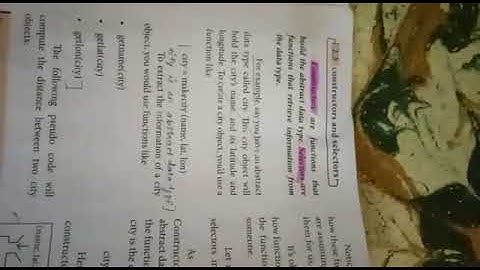 1.2.3 constructors and selectors
Constructors are functions that
build the abstract data type. Selectors are
functions that retrieve information from
the data type.
For example, say you have an abstract
data type called city. This city object will
hold the city's name, and its latitude and
longitude. To create a city object, you'd use a
function like
city = makecity (name, lat, lon)
city is an abstract data type
To extract the information of a city
object, you would use functions like
• getname(city)
• getlat(city)
• getlon(city)
The following pseudo code will
compute the distance between two city
objects:
Notice
how these fu
are assuming
them for us
It's ok
how function
the function
someone.
Let
selectors
As
Constructo
abstract da
the functi
city is the
city
He
construct
(name, lat